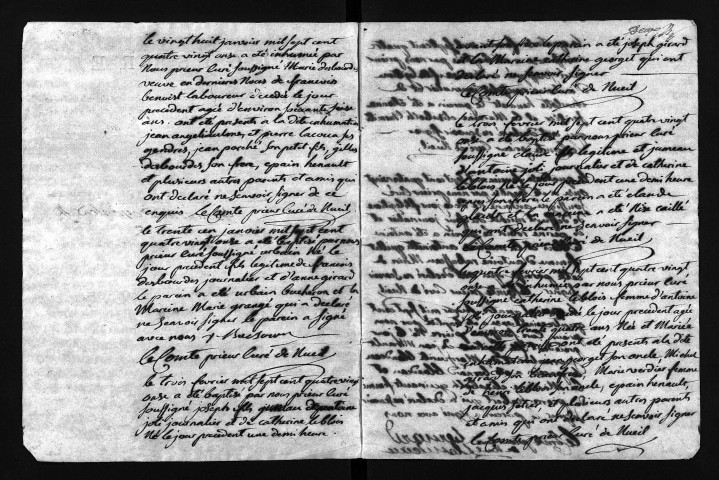 le vingt huit janvier mil sept cent
quatre vingt onze a été inhumée par
Nous prieur Curé soussigné Marie desbourdes
veuve en dernieres Noces de francois
benoist laboureur décédée le jour
précédent agée d'environ soixante seize
ans. ont été présents a la dite inhumation
jean angelliaulme, et pierre lacoua ses
gendres, jean poché son petit fils, gilles
desbourdes son frere, epain henault
et plusieurs autres parents et amis qui
ont déclaré ne scavoir signer de ce
enquis le Comte prieur Curé de Nueil
le trente un janvier mil sept cent
quatre vingt onze a été baptisé par nous
prieur Curé soussigné urbain Né le
jour précédent fils légitime de
desbourdes journalier et d'anne girard
le parain a été urbain bucheron et la
Maraine Marie grangé qui a déclaré
ne scavoir signer le parain a signé
avec nous
le Comte prieur Curé de Nueil
le trois fevrier mil sept cent quatre vingt
onze a été baptisé par nous prieur Curé
soussigné joseph fils jumeau d'antoine
joli journalier et de catherine leblois
Né le jour précédent une demi heure
parain a été joseph girard
et la Maraine catherine georget qui ont
déclaré ne scavoir signer
le Comte prieur Curé de Nueil
le trois fevrier mil sept cent quatre vingt
onze a été baptisé par nous prieur Curé
soussigné claude fils légitime et jumeau
d'antoine joli journalier et de catherine
leblois Né le jour précédent une demi heure
le parain a été claude
et la maraine a été Rose caillé
qui ont déclaré ne scavoir signer
le Comte prieur Curé de Nueil
fevrier mil sept cent quatre vingt
onze a été inhumée par nous prieur Curé
soussigné catherine leblois femme d'antoine
joli journalier décédée le jour précédent agée
quatre ans
ont été présents a la dite
inhumation georget son oncle, Michel
Marie verdier femme
de leblois epain henault,
jacques et plusieurs autres parents
et amis qui ont déclaré ne scavoir signer
le Comte prieur Curé de Nueil